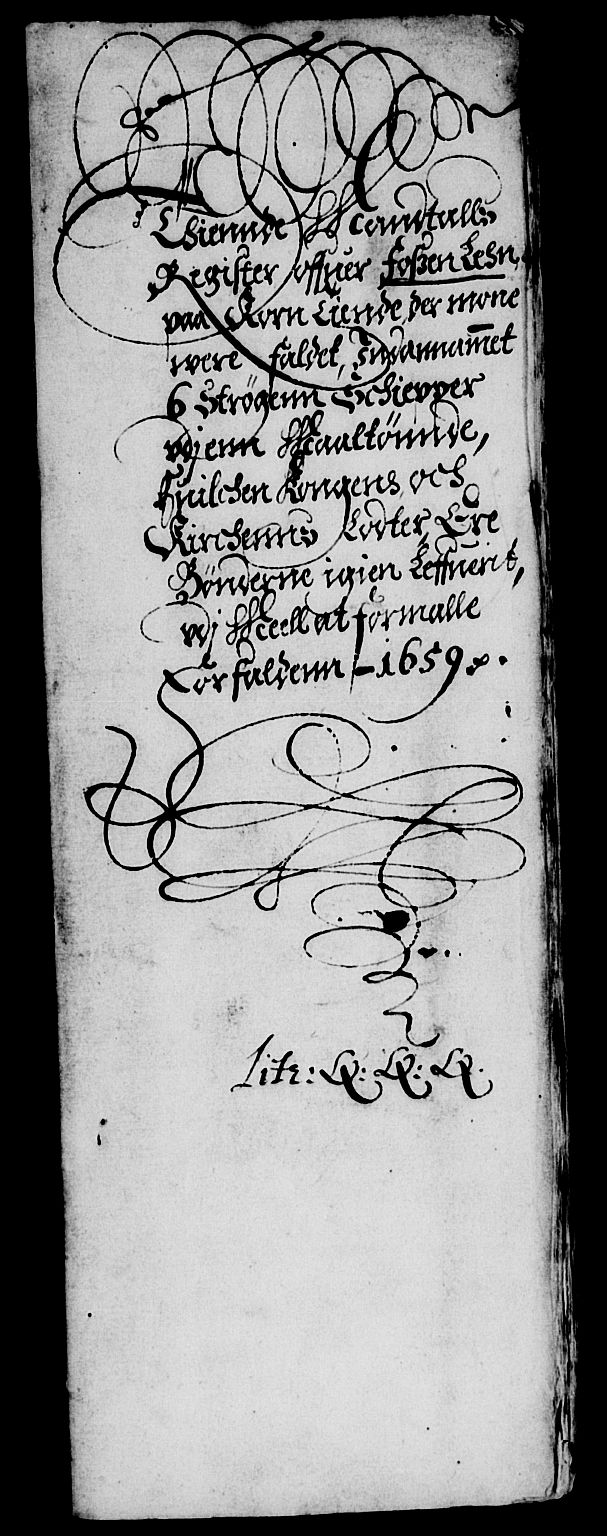 Thiennde Mandtalls
Register offuer Foßen Lehn,
paa Korn tiende, der mone
were faldet, Indannamet
6 Strøgenn Schiepper
vdj enn Maaltønnde,
Huilchen Kongens och
Kirchenns Lodter, Ere
Bønderne igien Leffuerit,
vdj Meell at formalle
Forfaldenn – 1659 ⁊.
Lit: Q: Q: Q.